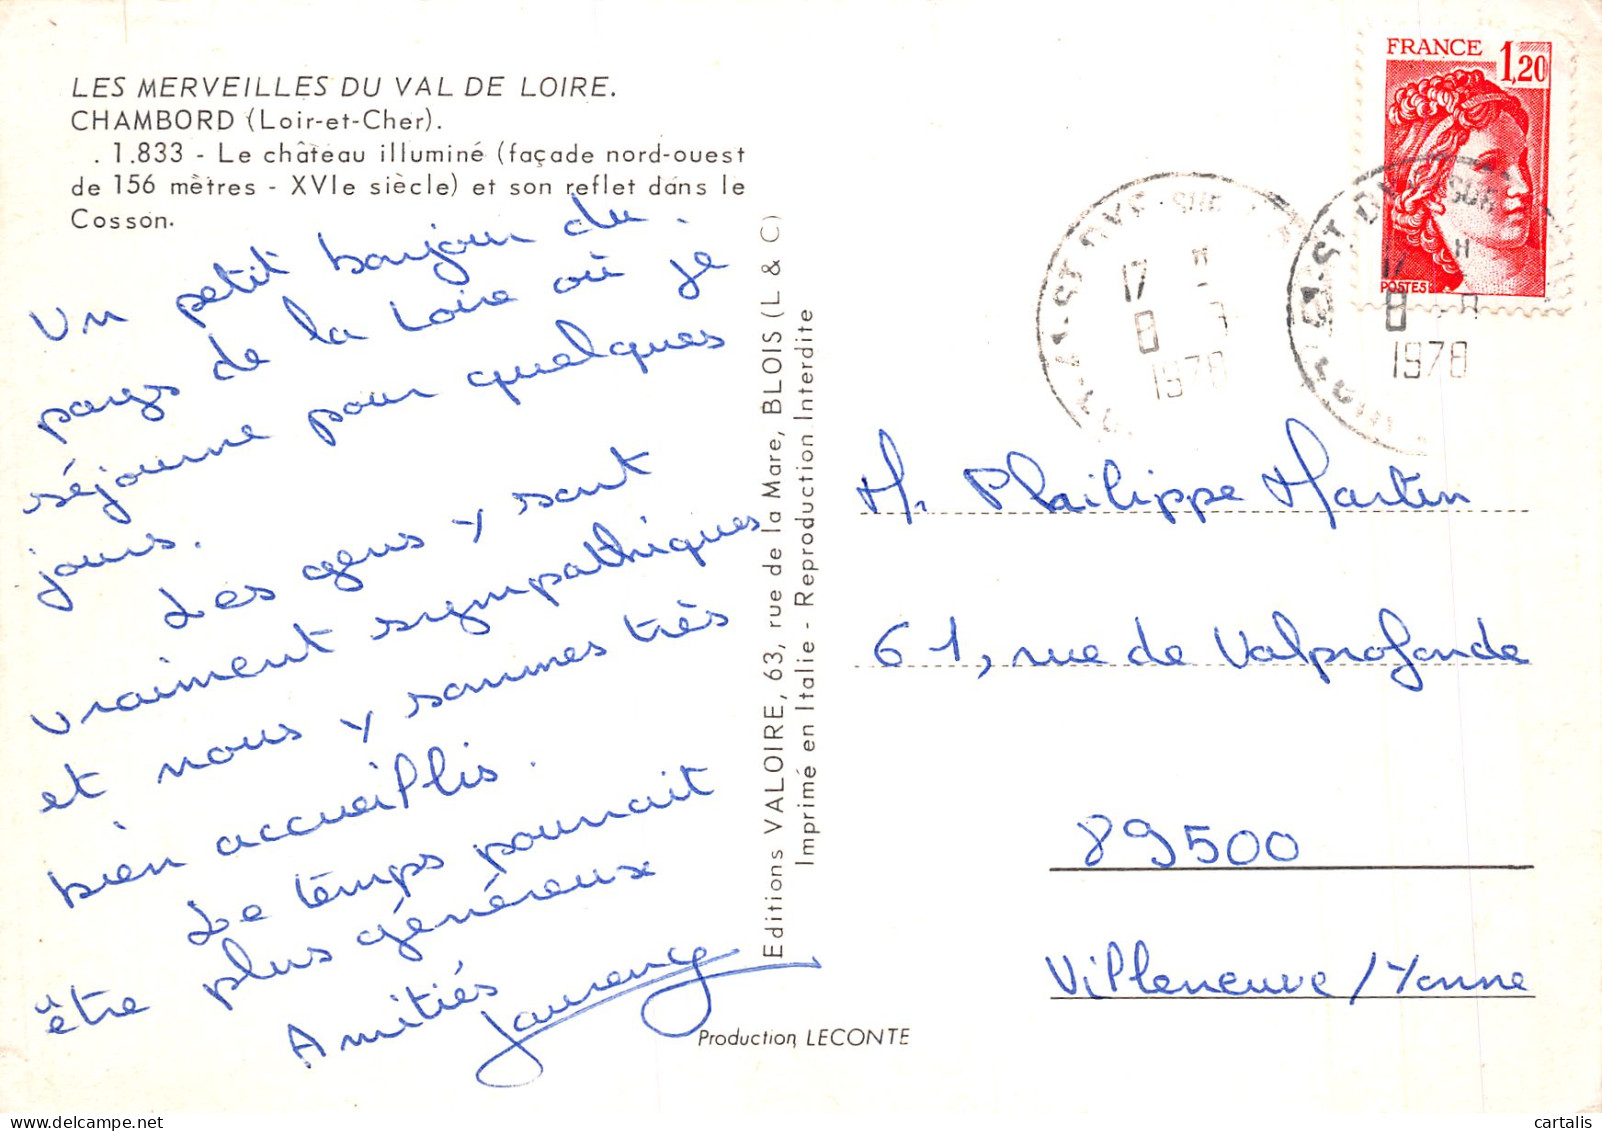 LES MERVEILLES DU VAL DE LOIRE.
CHAMBORD (Loir-et-Cher).
. 1.833 - Le château illuminé (façade nord-ouest
de 156 mètres - XVIe siècle) et son reflet dans le
Cosson.
Un petit bonjour du
pays de la Loire où je
séjourne pour quelques
jours.
Les gens y sont
vraiment sympathiques
et nous y sommes très
bien accueillis.
Le temps pourrait
être plus généreux
Amitiés
Editions VALOIRE, 63, rue de la Mare, BLOIS (L & C)
Imprimé en Italie - Reproduction Interdite
Production LECONTE
FRANCE 1,20
POSTES
17 H
8
1978
17 H
8
1978
M. Philippe Martin
61, rue de Valprofonde
89500
Villeneuve/Yonne
cartalis